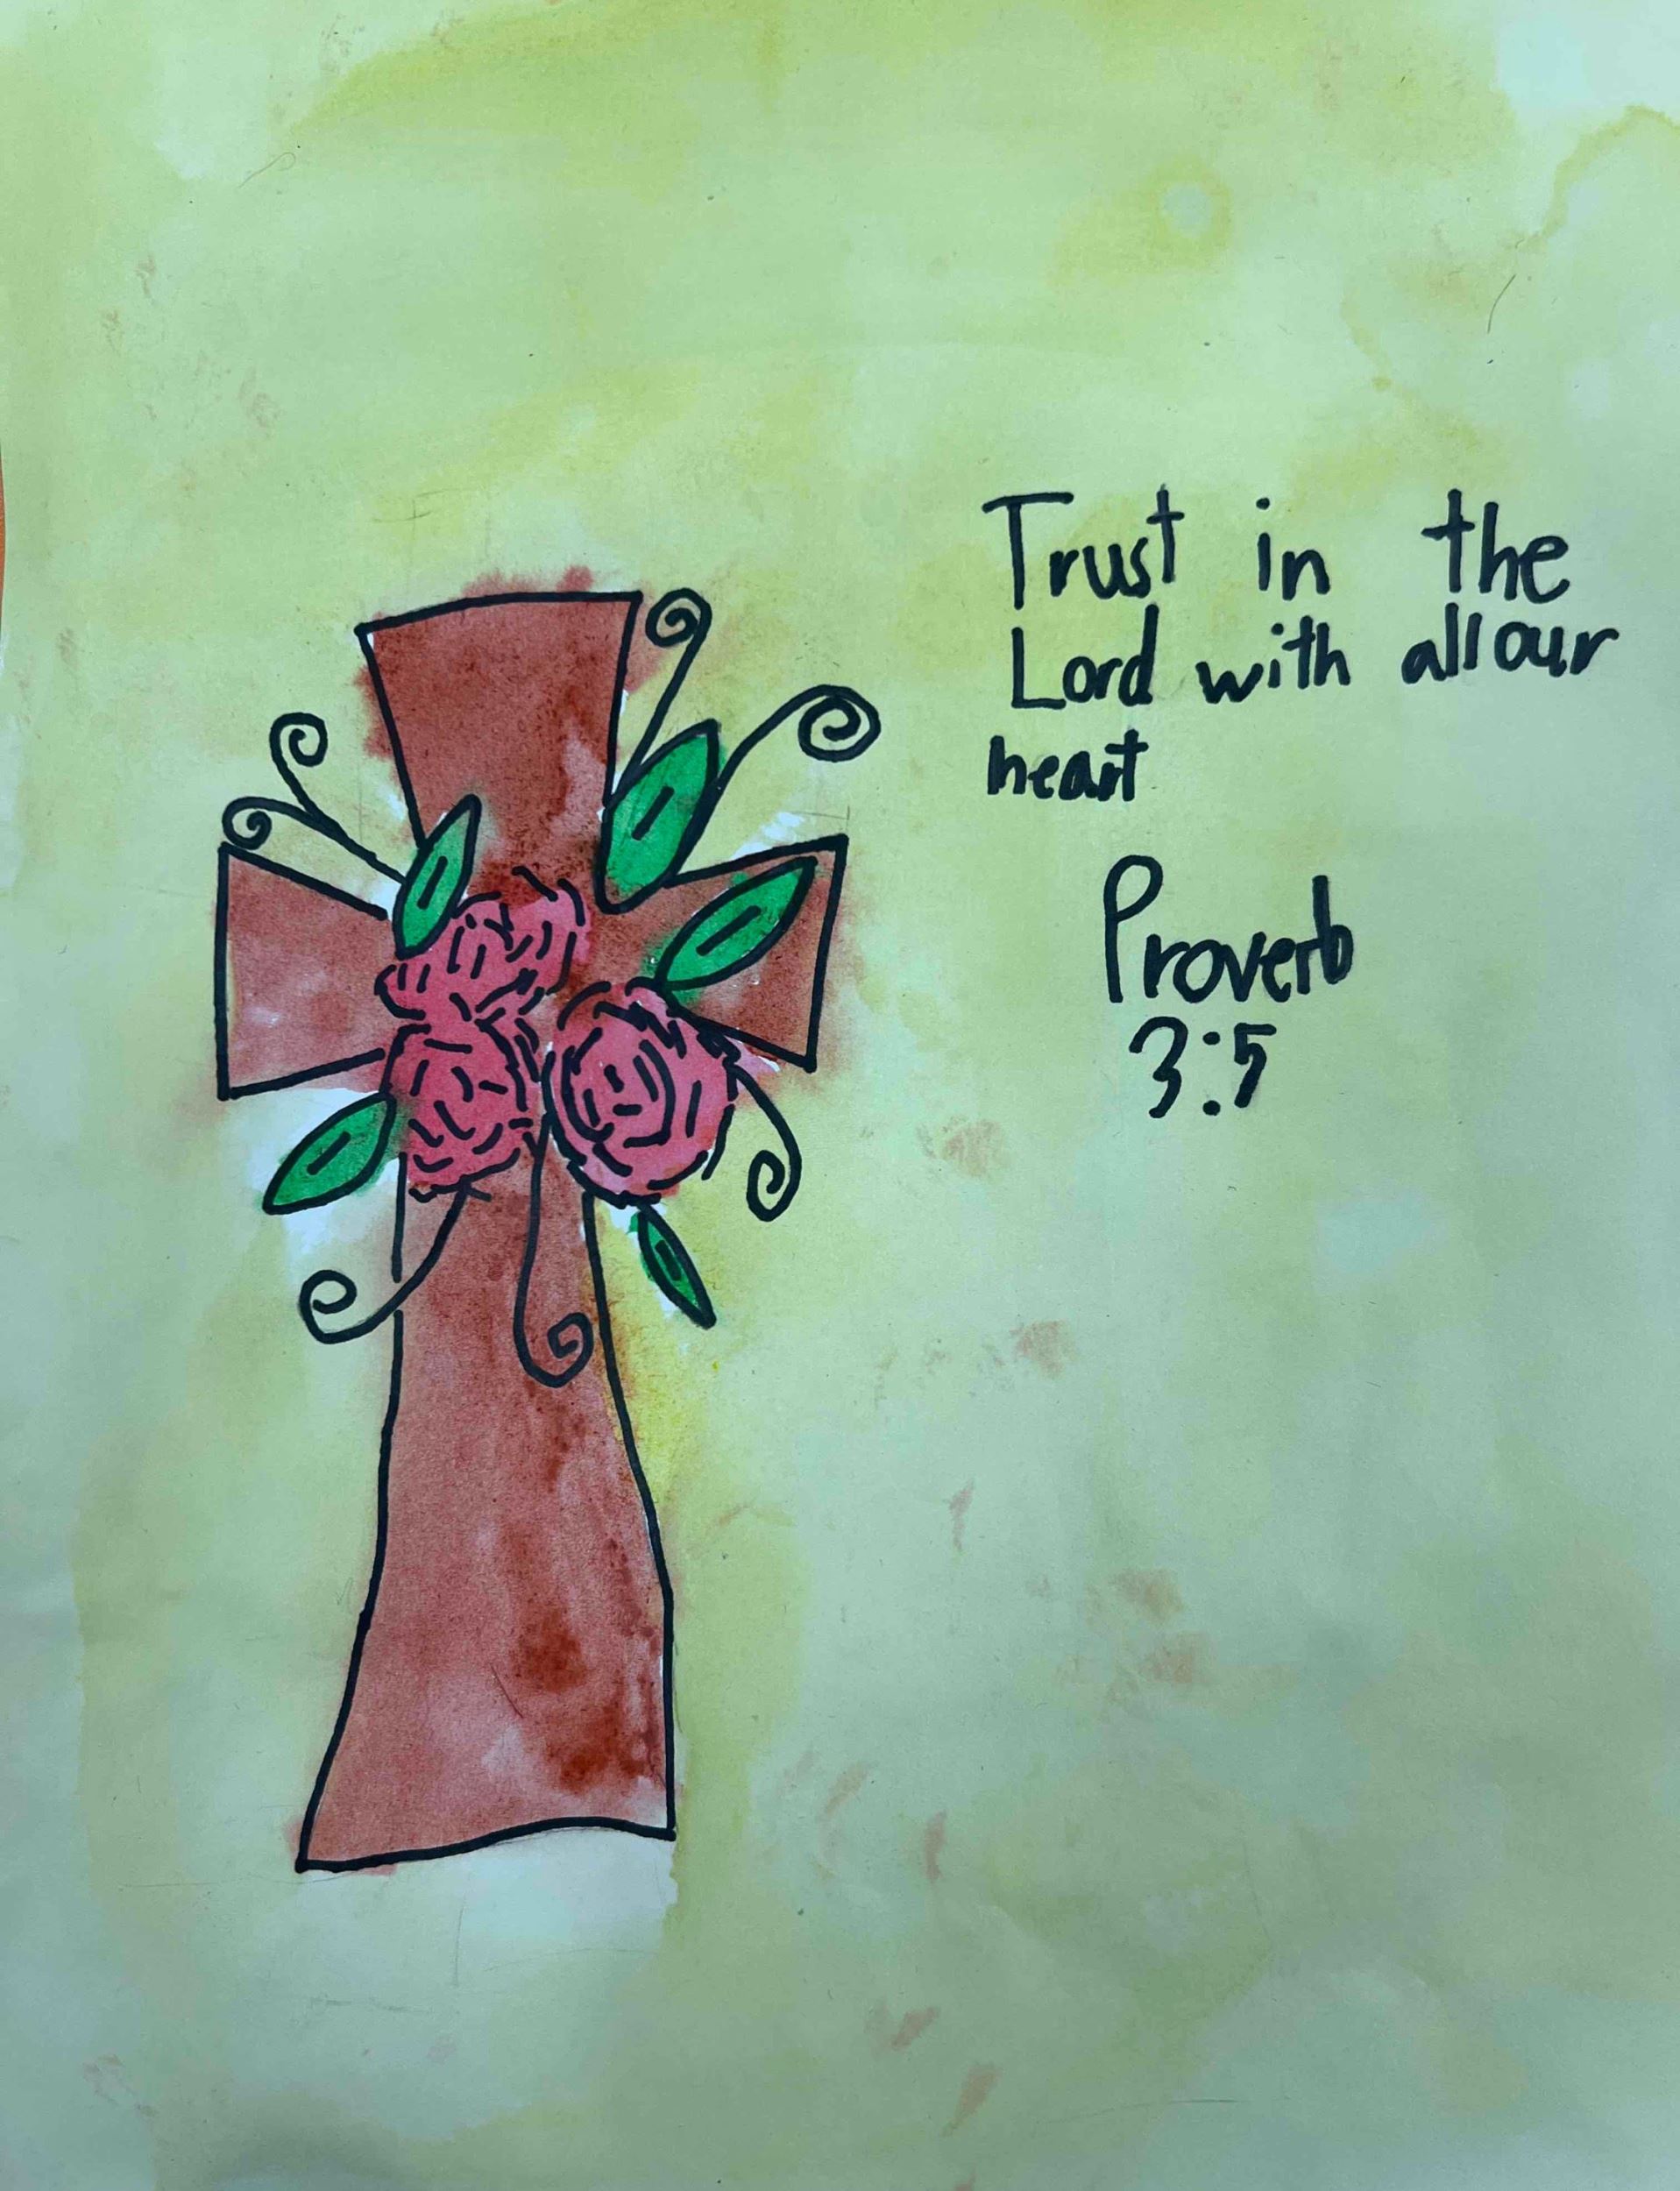 Trust in the
Lord with all our
heart
Proverb
3:5